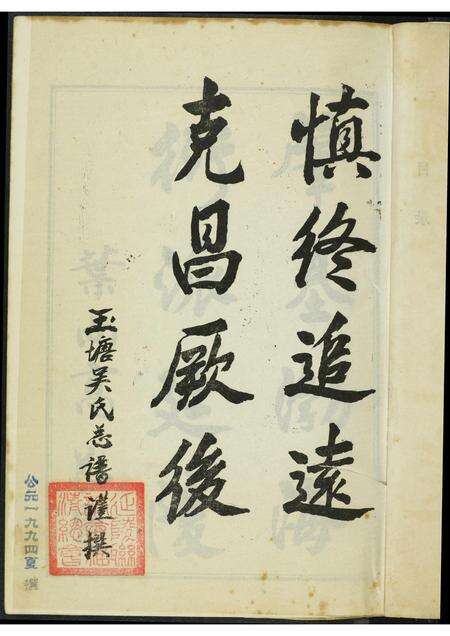 慎終追遠
克昌厥後
玉塘吴氏总譜謹撰
公元一九九四夏 撰